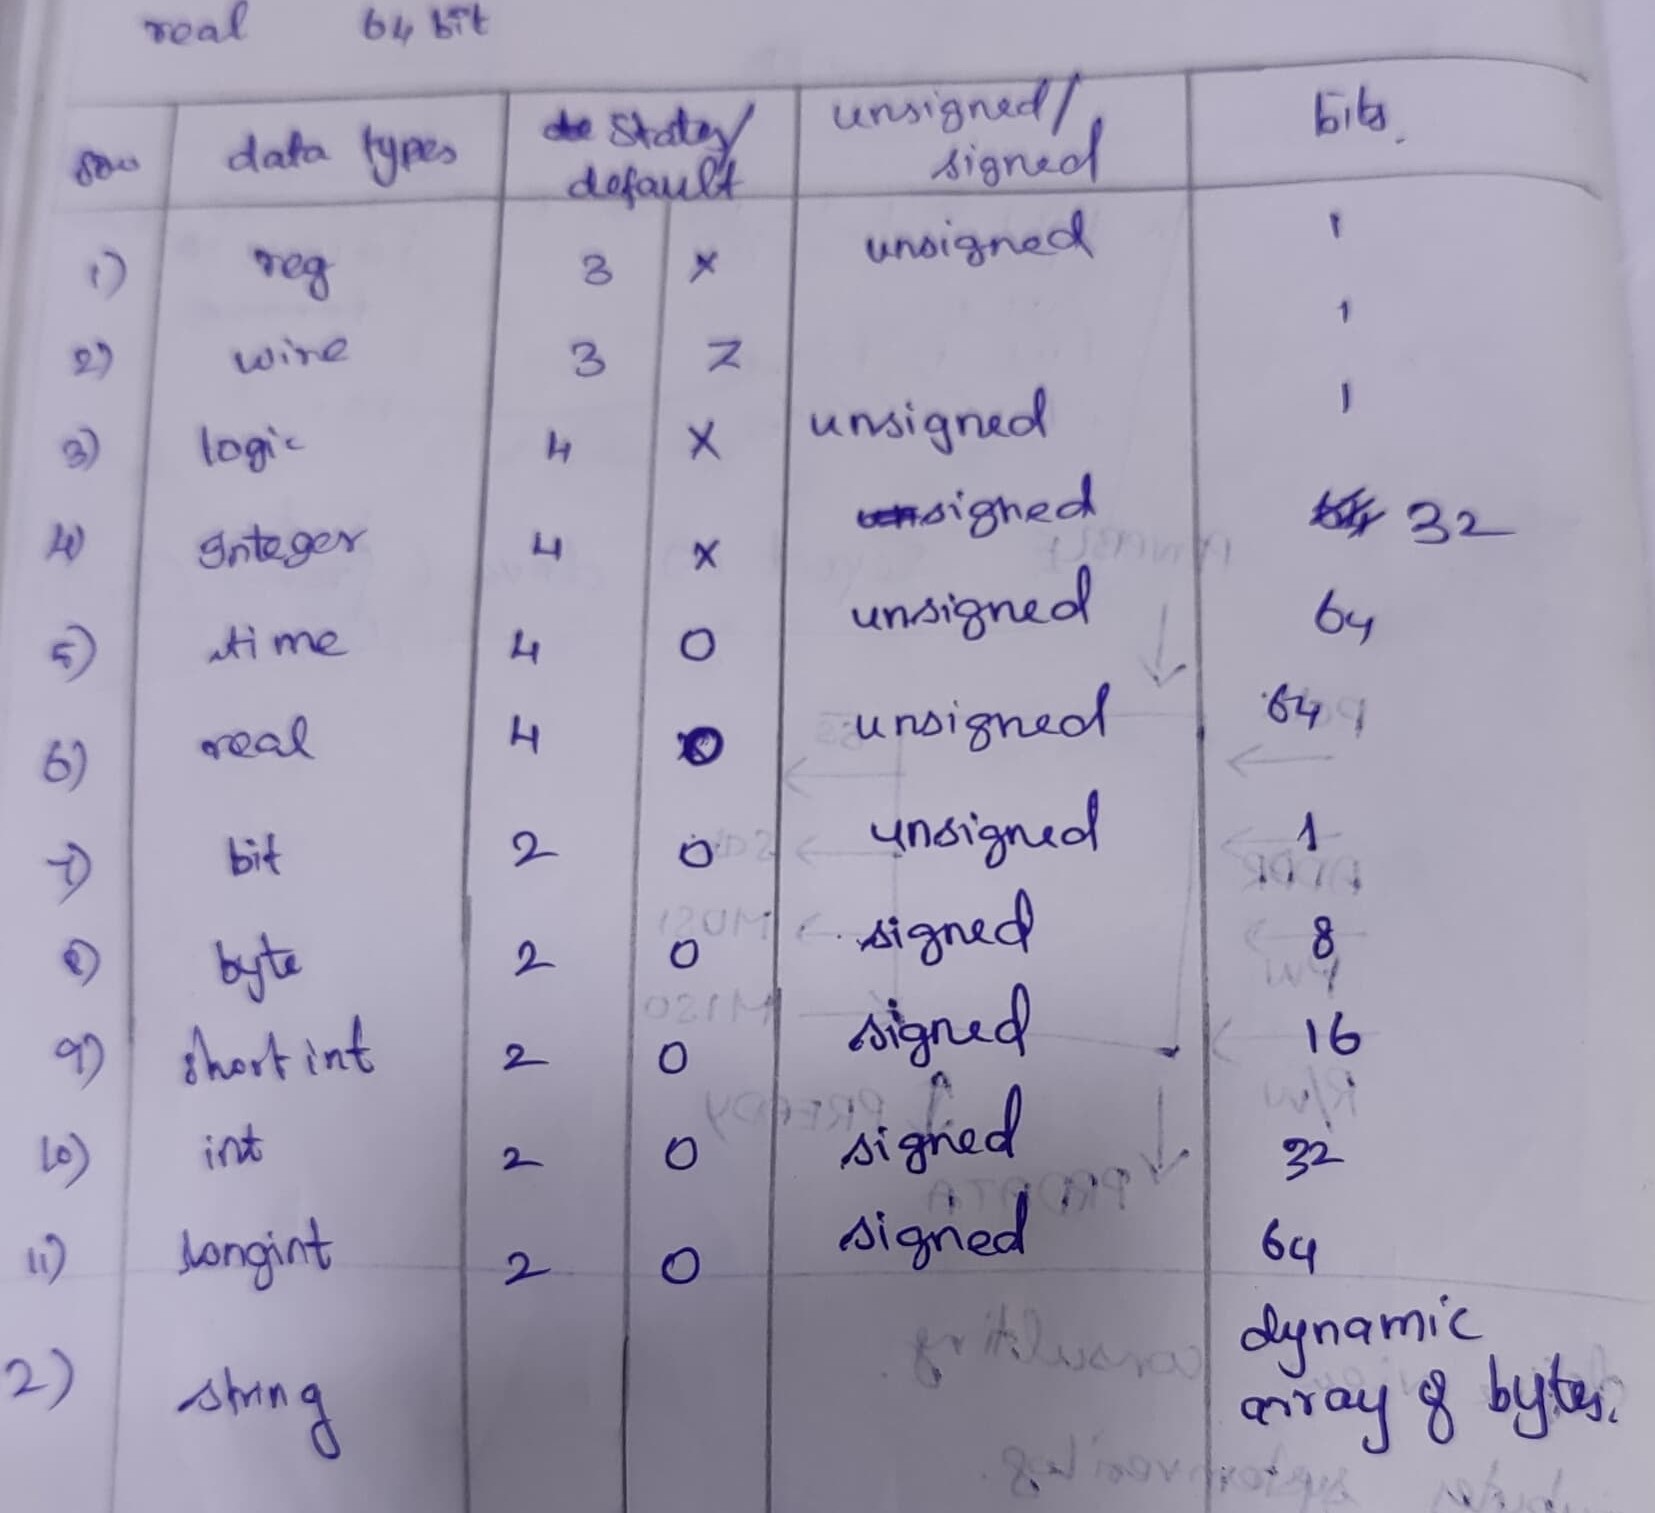 real 64 bit
data types States/ default unsigned/ signed bits.
1) reg 3 x unsigned 1
2) wire 3 Z 1
3) logic 4 X unsigned 1
4) Integer 4 x signed 32
5) time 4 0 unsigned 64
6) real 4 0 unsigned 64
7) bit 2 0 unsigned 1
8) byte 2 0 signed 8
9) short int 2 0 signed 16
10) int 2 0 signed 32
11) longint 2 0 signed 64
2) string dynamic
array of bytes.